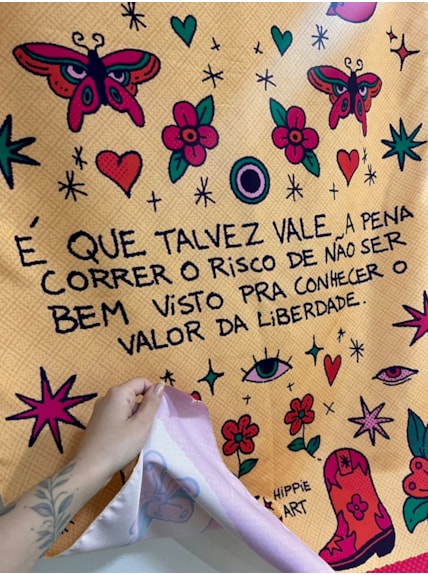 É QUE TALVEZ VALE A PENA
CORRER O RISCO DE NÃO SER
BEM VISTO PRA CONHECER O
VALOR DA LIBERDADE.
HIPPIE
ART